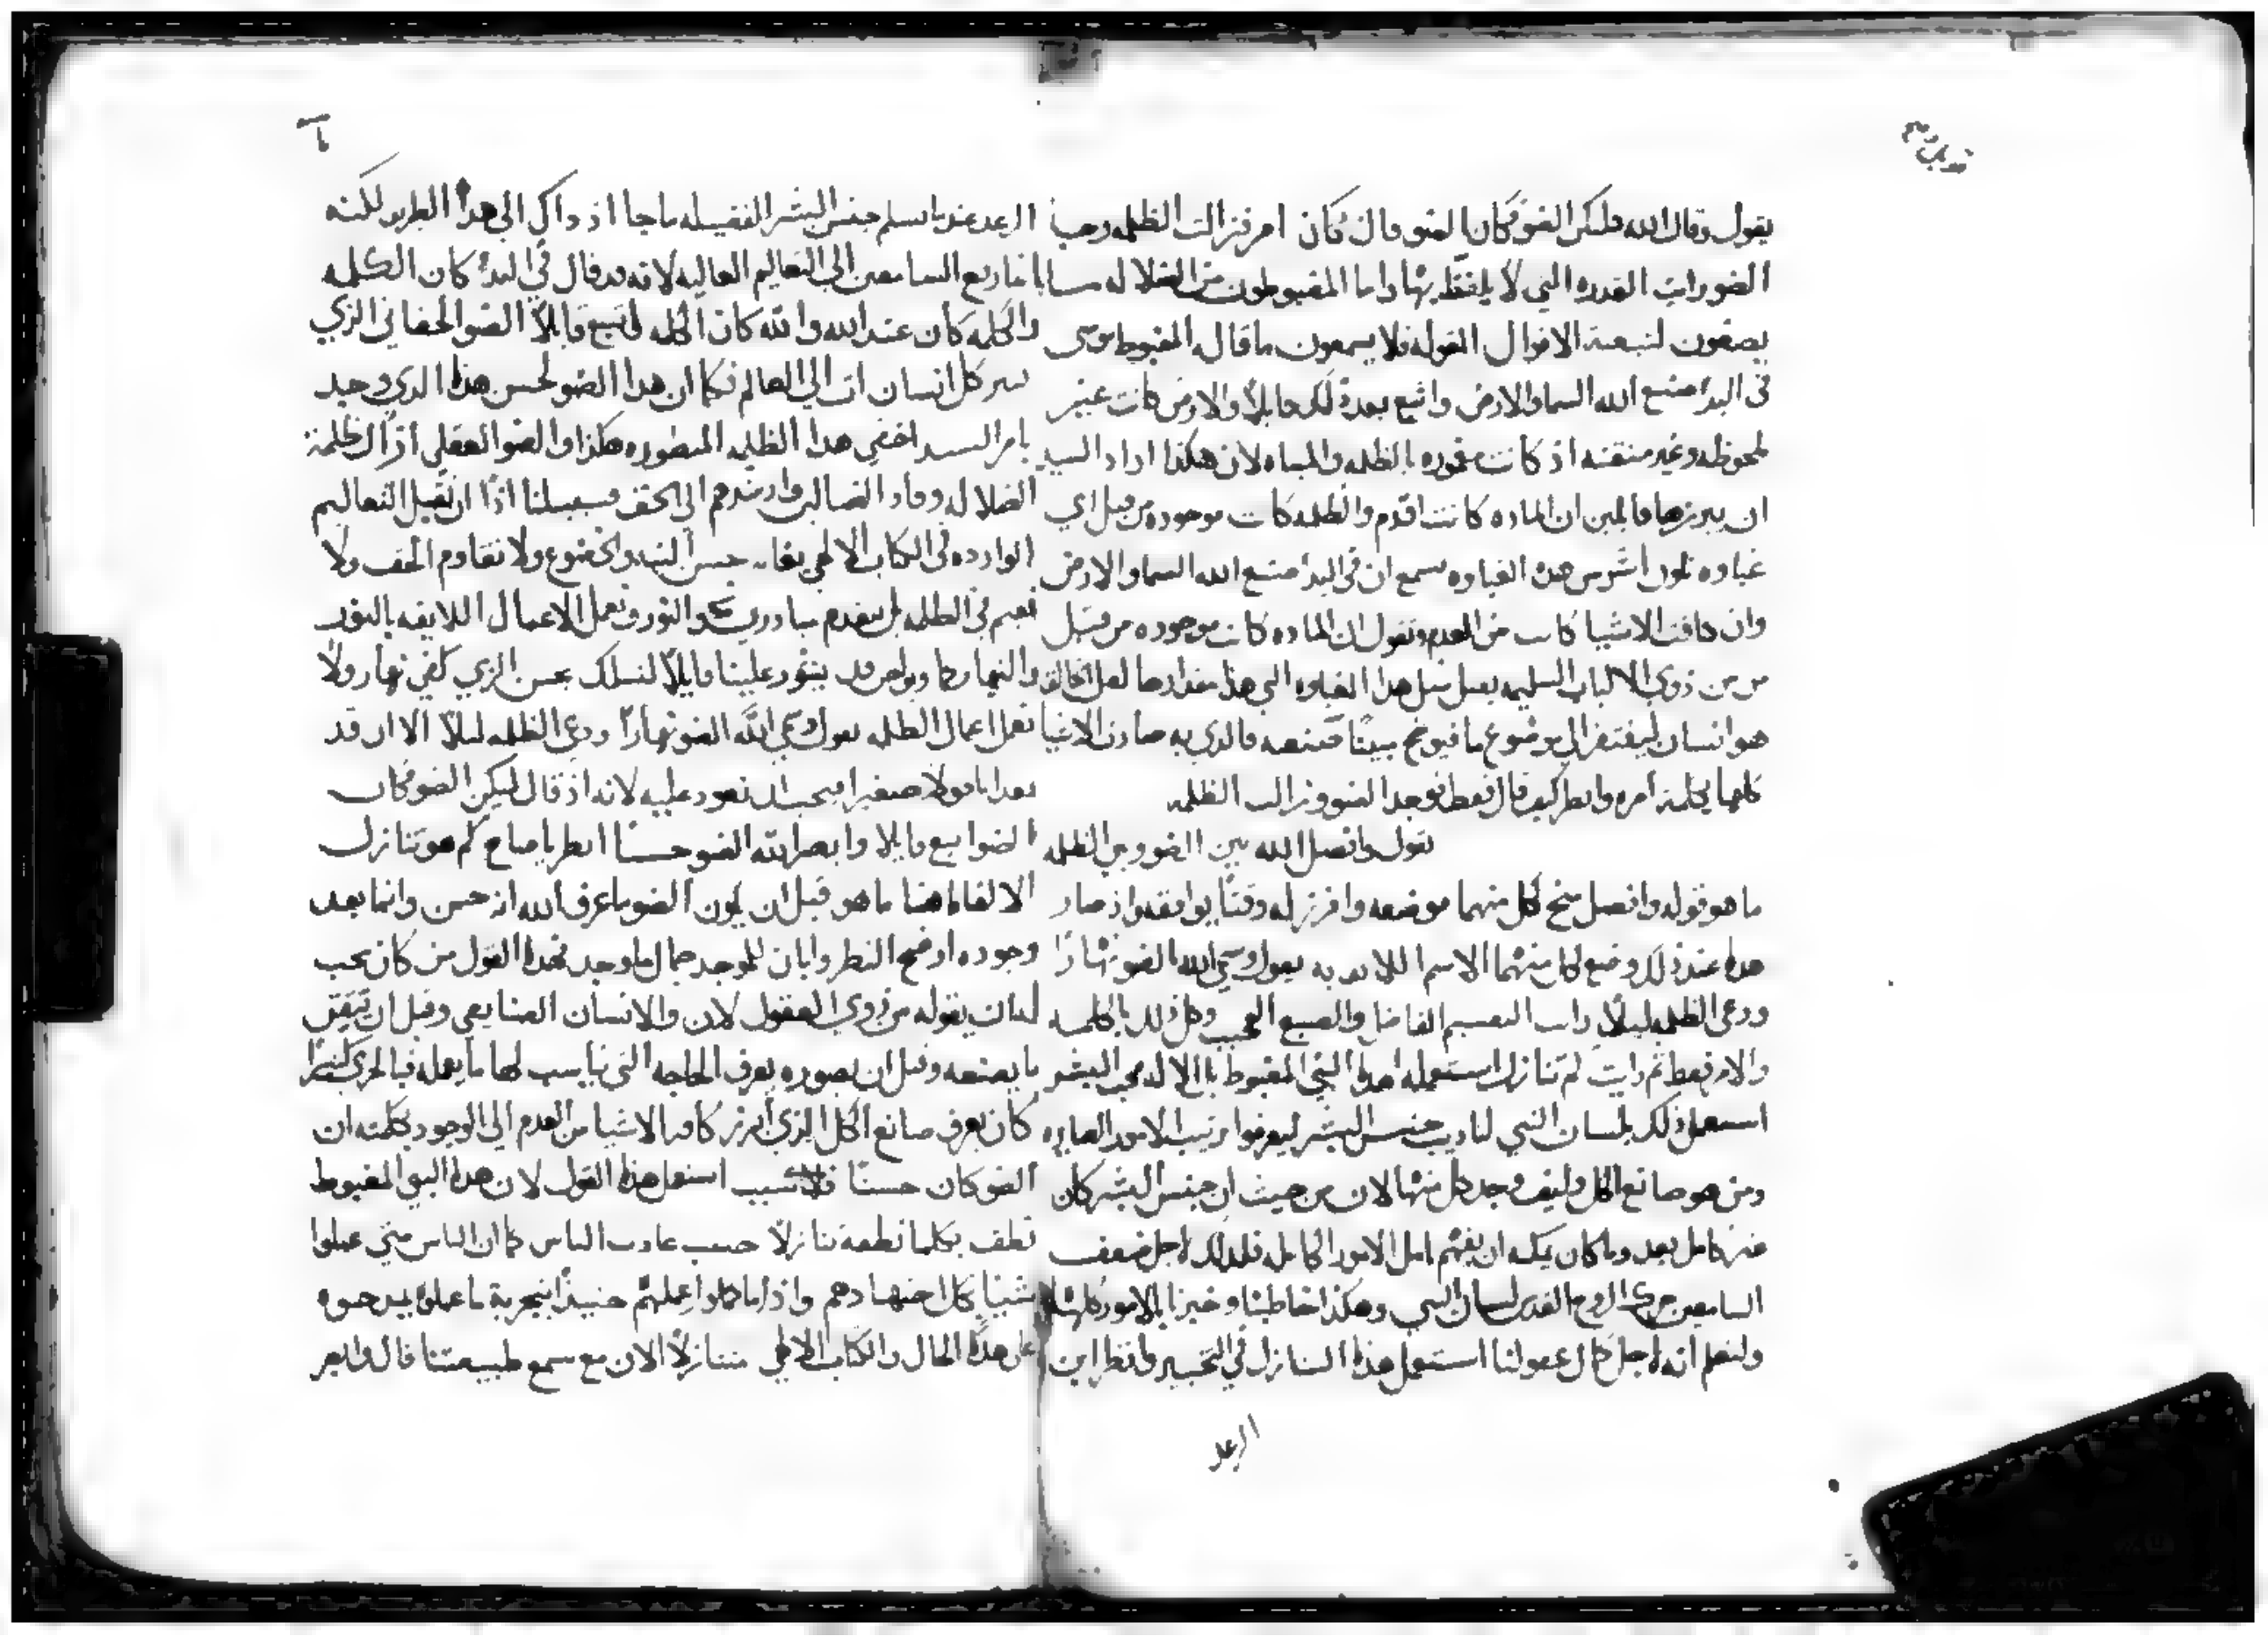 يقول وقال الله فليكن الضو فكان الضو قال فكان امر فزالت الظلمه وجا
الضو رايت القدره التي لا يلفظ بها واما المغبوطون من الضلاله
يصغون لتبعة الاقوال القوله فلا يسمعون ما قال المغبوط موسى
في البدا صنع الله السما والارض واتبع بعد ذلك قايلاً والارض كانت غير
ملحوظه وغير متقنه اذ كانت مغموره بالظلمه والمياه لان هكذا اراد السيد
ان يبرزها قايلين ان الماده كانت اقدم والظلمه كانت موجوده من قبل اي
غباوه تكون اشر من هذه الغباوه تسمع ان في البدا صنع الله السما والارض
وان كافت الاشيا كانت من العدم وتقول ان الماده كانت موجوده من قبل
من من ذوي الالباب السليمه يقبل مثل هذا الغباوه التي هذا مقدارها لعل الخالق
هو انسان ليفتقر الى موضوع ما فيوضح بيتًا صنعه فالذي به صارت الاشيا
كلها بكلمة امره وانظر كيف قال فقط فوجد الضو وزالت الظلمه
يقول وافصل الله بين الضو وبين الظلمه
ما هو قوله وافصل منح لكل منهما موضعه وافرز له وقتًا يوافقه واذ صار
هذا عند ذلك وضع لكل منهما الاسم اللايق به يقول وسمي الله الضو نهارًا
ودعى الظلمه ليلاً رايت التقسيم الفاضل والصنيع العجيب وكل ذلك بالكلمه
والامر فقط ثم رايت كم تنازل استعمله هذا النبي المغبوط بل الاله محب البشر
استعمل ذلك بلسان النبي لتاديب جنس البشر ليعرفوا ترتيب الامور الصايره
ومن هو صانع الكل وكيف وجد كل منها لان من حيث ان جنس البشر كان
غير كامل بعد وما كان يمكنه ان يفهم امل الامور الكامله فلذلك لاجل ضعف
السامعين حرك الروح القدس لسان النبي وهكذا خاطبنا وخبرنا بالامور كلها
ولتعلم انه لاجل كمال عقولنا استعمل هذا التنازل في التخبير وانظر ابن
الرعد
الرعد عندما تسلم جنس البشر الفضيله ما جا اذ ذاك الى هذا الطريق لكنه
انما رفع السامعين الى التعاليم العاليه لانه قد قال في البدا كان الكلمه
والكلمه كان عند الله والله كان الكلمه اتبع قايلاً الضو الحقاني الذي
ينير كل انسان ات الى العالم فكما ان هذا الضو لحسن هذا الذي وجد
بامر السيد اخفي هذا الظلمه المنظوره هكذا والضو العقلي ازال ظلمة
الضلاله وقاد الضالين وارشدهم الى الحق فسبيلنا اذًا ان نقبل التعاليم
الوارده في الكتاب الالهي بغايه حسن النيه والخضوع ولا نقاوم الحق ولا
نقيم في الظلمه بل نتقدم مبادرين نحو النور ونعمل الاعمال اللايقه بالنور
والنهار كما وبولص قد يشور علينا قايلاً لنسلك بحسن الزي كفي نهار ولا
نعمل اعمال الظلمه يقول وسمي الله الضو نهارًا ودعى الظلمه ليلاً الا ان قد
بعدانا قولا صغيرا فيجب ان نعود عليه لانه اذ قال ليكن الضو فكان
الضو اتبع قايلا وابصر الله الضو حسنًا انظر يا صاح كم هو تنازل
الالفاظ هنا ما هو قبل ان يكون الضو ما عرف الله انه حسن وانما بعد
وجوده اوضح النظر وابان للموجد جمال ما وجد فهذا القول من كان يحب
يقوله من ذوي العقول لان والانسان الصنايعي وقبل ان يتقن
ما يصنعه وقبل ان يصوره يعرف الحاجه التي تناسب لها ما يعمله فبالحري كثيرًا
كان يعرف صانع الكل الذي ابرز كافة الاشيا من العدم الى الوجود بكلمته ان
الضو كان حسنًا فلاي سبب استعمل هذا القول لان هذا النبي المغبوط
نطق بكلما نطقه تنازلاً حسب عادت الناس كما ان الناس متى عملوا
شيئا بكل اجتهادهم واذا ما كملوا عملهم حينيذٍ بتجربة ما عملوه يمدحوه
على هذا المثال والكتاب الالهي متنازلاً الان مع سمع طبيعتنا قال وابصر